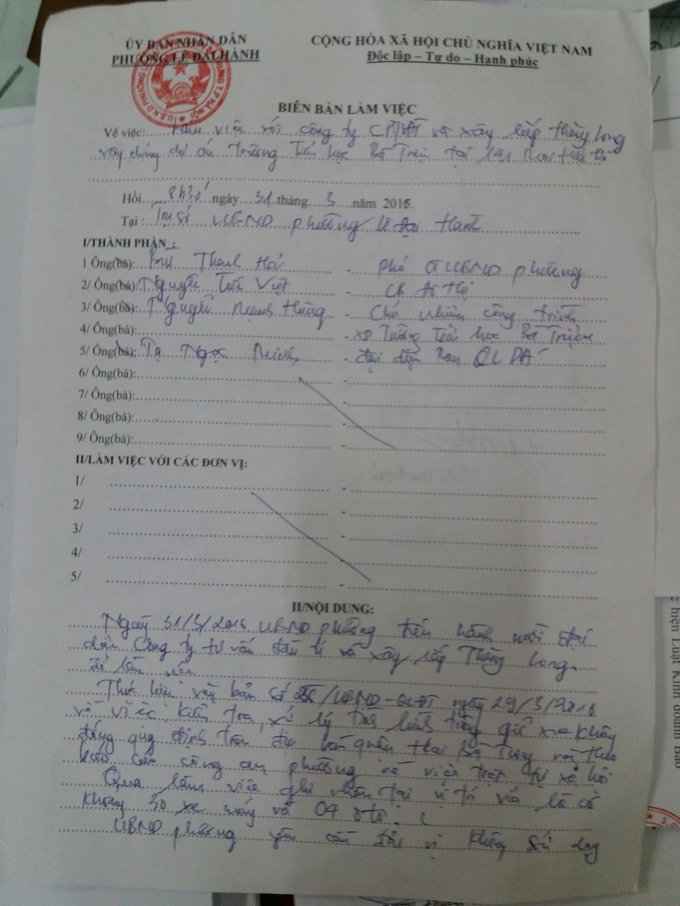 ỦY BAN NHÂN DÂN
PHƯỜNG LÊ ĐẠI HÀNH
CỘNG HÒA XÃ HỘI CHỦ NGHĨA VIỆT NAM
Độc lập – Tự do – Hạnh phúc
BIÊN BẢN LÀM VIỆC
Về việc: viện với công ty CPTVĐT và xây lắp Thăng Long
xây dựng dự án Trường Tiểu học Bà Triệu tại
Hồi 8h30 ngày 31 tháng 3 năm 2016.
Tại : Trụ sở UBND phường Lê Đại Hành
I/THÀNH PHẦN :
1 Ông(bà): Bùi Thanh Hải - phó CTUBND phường
2/ Ông(bà): Nguyễn Tiến Việt - CB đô thị
3/ Ông(bà): Nguyễn Mạnh Hùng - Chủ nhiệm công trình
4/ Ông(bà): - XD Trường Tiểu học Bà Triệu
5/ Ông(bà): Tạ Ngọc Minh - đại diện Ban QLDA
6/ Ông(bà):
7/ Ông(bà):
8/ Ông(bà):
9/ Ông(bà):
II/LÀM VIỆC VỚI CÁC ĐƠN VỊ:
1/
2/
3/
4/
5/
II/NỘI DUNG:
Ngày 31/3/2016 UBND phường tiến hành mời đại
diện Công ty tư vấn đầu tư và xây lắp Thăng Long
để làm việc
Thực hiện văn bản số /UBND-QLĐT ngày 29/3/2016
về việc kiểm tra, xử lý tình hình trông giữ xe không
đúng quy định trên địa bàn quận Hai Bà Trưng và theo
báo cáo công an phường về việc trật tự xã hội
Qua làm việc ghi nhận tại vị trí là có
khoảng 30 xe máy và 04 ô tô.
UBND phường yêu cầu đơn vị không sử dụng
hiện Luật Kinh doanh Bảo